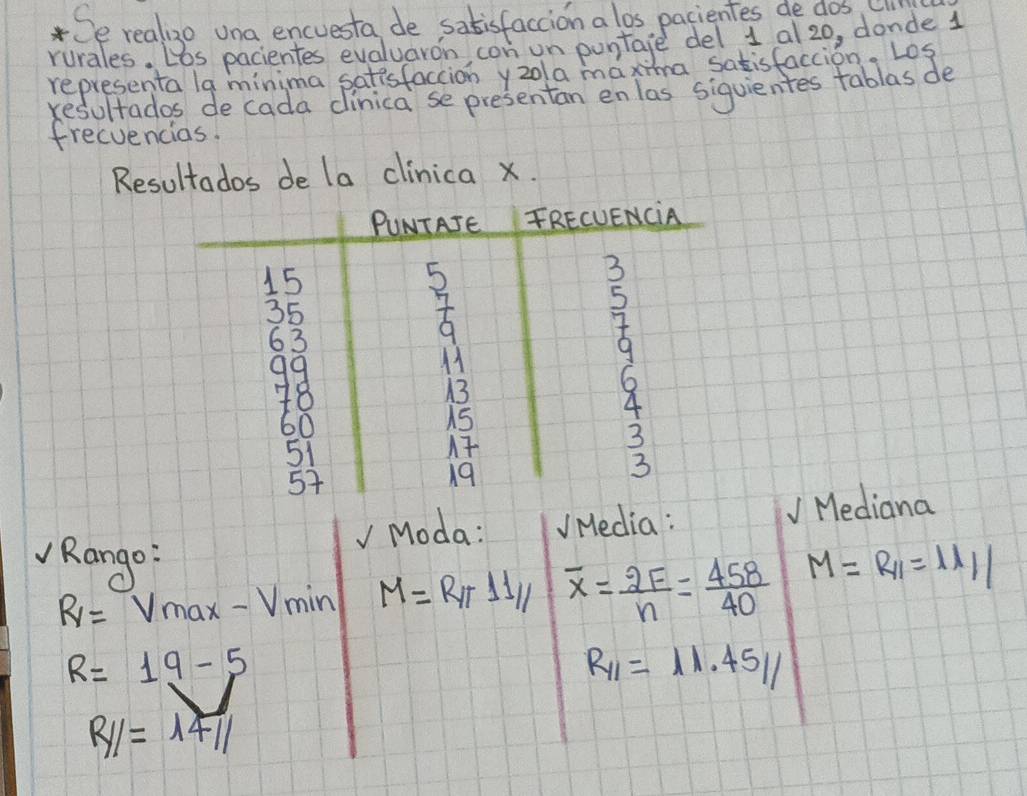 *Se realizo una encuesta de satisfacción a los pacientes de dos clinicas
rurales. Los pacientes evaluarón con un puntaje del 1 al 20, donde 1
representa la mínima satisfaccion y 20 la maxima satisfaccion. Los
resultados de cada clinica se presentan en las siguientes tablas de
frecuencias.
Resultados de la clinica x.
PUNTAJE FRECUENCIA
15 5 3
35 7 5
63 9 7
99 11 9
78 13 6
60 15 4
51 17 3
57 19 3
√ Rango: √ Moda: √ Media: √ Mediana
R// = Vmax - Vmin M = R// 11// x̄ = ΣF/n = 458/40 M = R// = 11//
R = 19 - 5 R// = 11.45//
R// = 14//